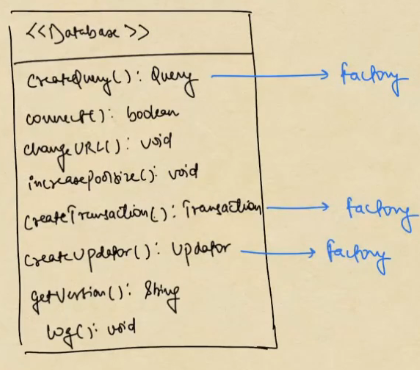 <<Database>>
createQuery(): Query → factory
connect(): boolean
changeURL(): void
increasePoolSize(): void
createTransaction(): Transaction → factory
createUpdator(): Updator → factory
getVersion(): String
log(): void